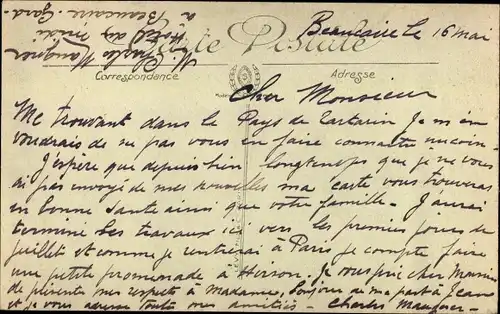 Beaucaire le 16 Mai
Carte Postale
Correspondance
Adresse
Hôtel du Midi
à Beaucaire. Gard.
Cher Monsieur
Me trouvant dans le Pays de Tartarin Je m'en
voudrais de ne pas vous en faire connaitre un coin -
J'espère que depuis bien longtemps que je ne vous
ai pas envoyé de mes nouvelles ma carte vous trouvera
en bonne santé ainsi que votre famille - J'aurai
terminé les travaux ici vers les premiers jours de
juillet et comme je rentrerai à Paris je compte faire
une petite promenade à Hirson. Je vous prie cher Monsieur
de présenter mes respects à Madame, bonjour de ma part à Jean
et je vous adresse toute mes amitiés - Charles